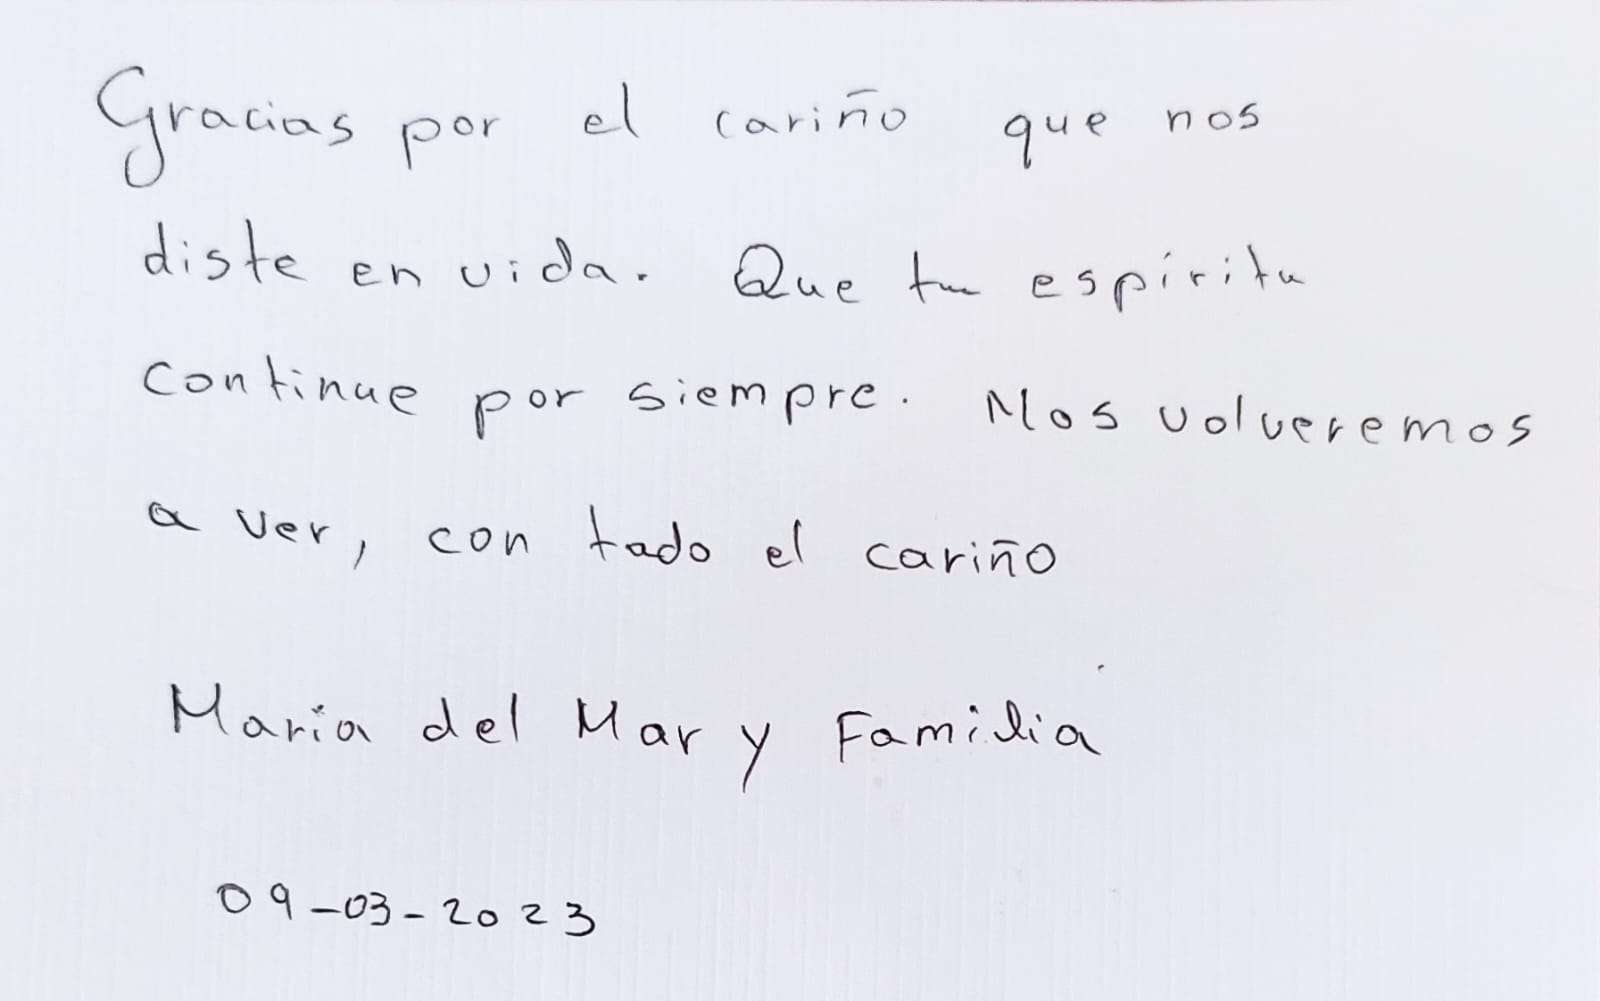 Gracias por el cariño que nos
diste en vida. Que tu espíritu
continue por siempre. Nos volveremos
a ver, con todo el cariño
Maria del Mar y Familia
09-03-2023